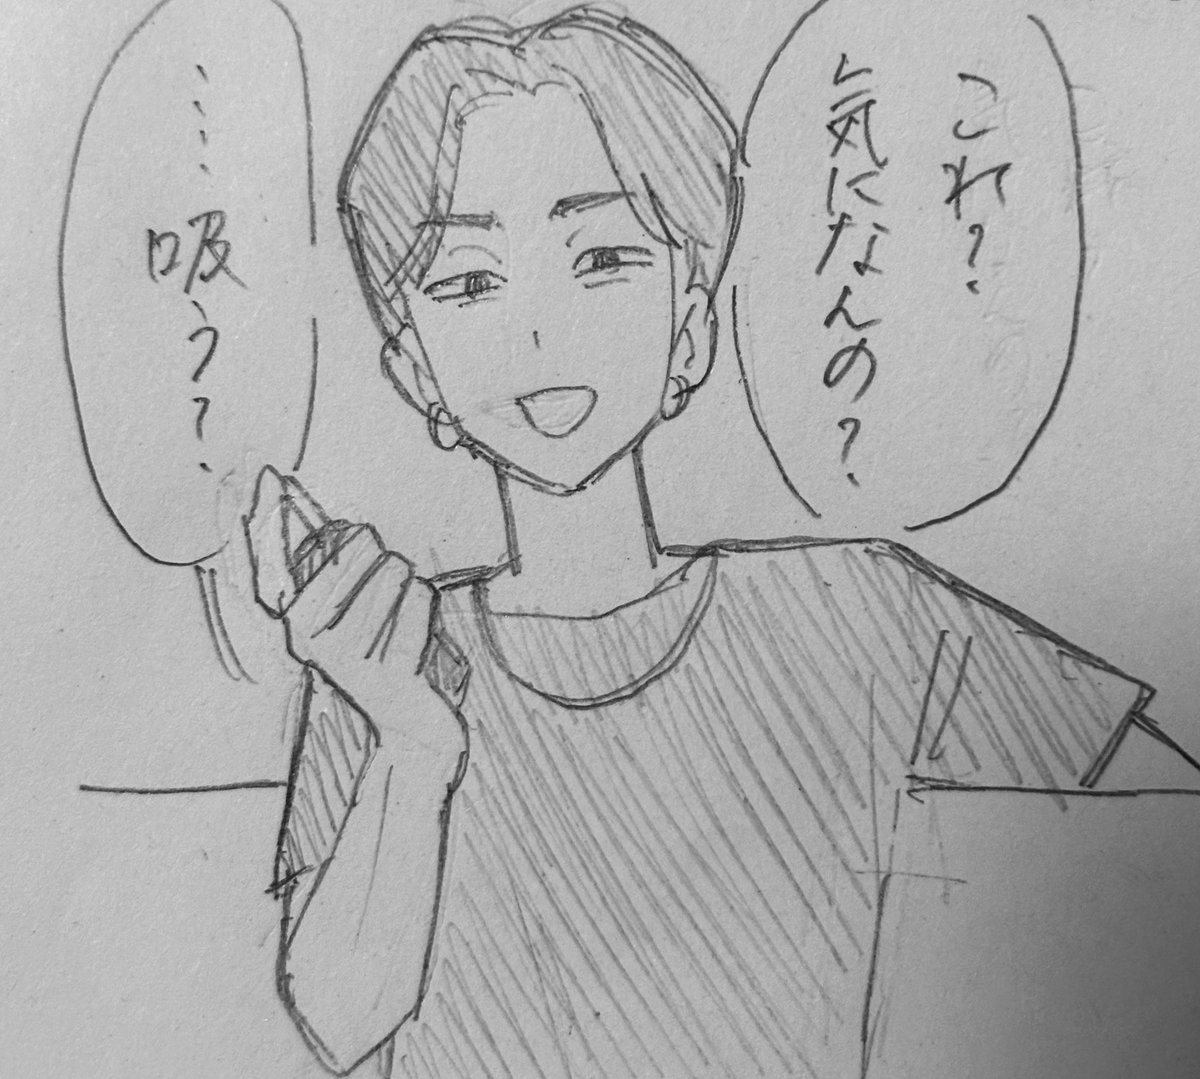 これ?
気になんの?
……吸う?